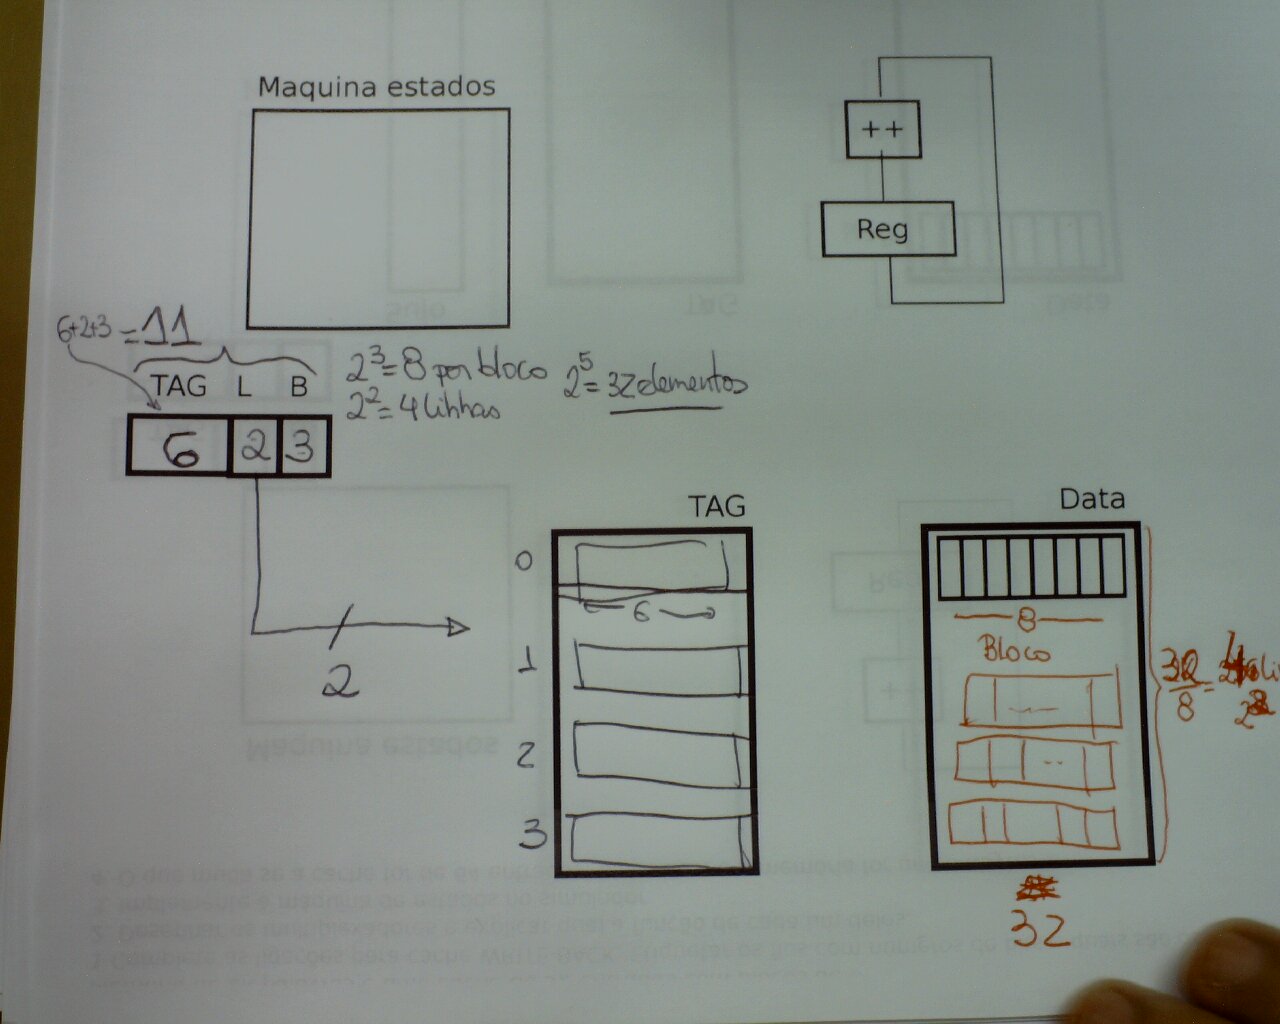 Maquina estados
++
Reg
6+2+3 = 11
TAG L B
6 2 3
2³ = 8 por bloco
2² = 4 linhas
2⁵ = 32 elementos
2
TAG
0
6
1
2
3
Data
8
Bloco
32
8
=
32